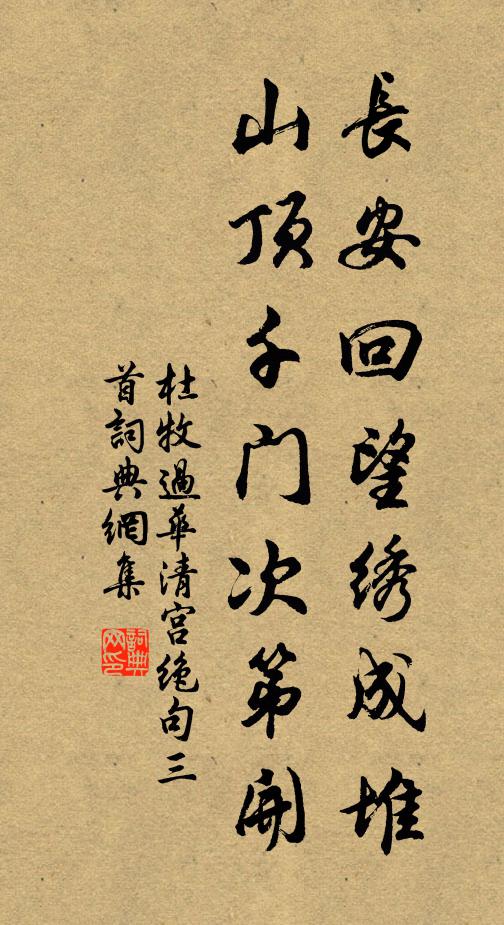 長安回望绣成堆
山顶千门次第開
杜牧過華清宫絶句三
首詞典網集
詞典
网印